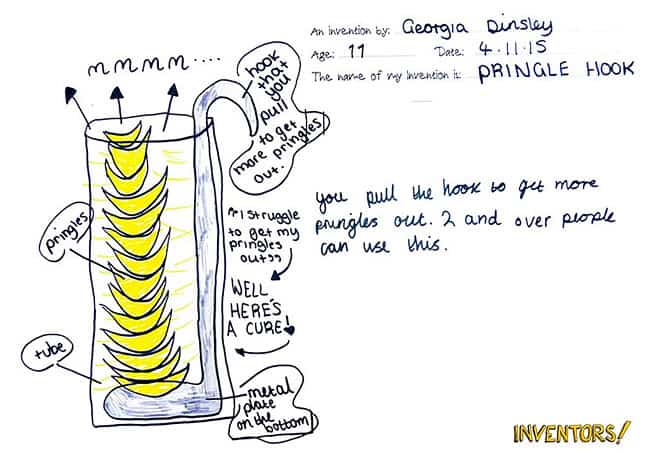 An invention by: Georgia Dinsley
Age: 11 Date: 4.11.15
The name of my invention is: PRINGLE HOOK
mmmm....
hook
that
you
pull
to get
more pringles
out.
you pull the hook to get more
pringles out. 2 and over people
can use this.
"I struggle
to get my
pringles
out"
WELL
HERE'S
A CURE!
pringles
tube
metal
plate
on the
bottom
INVENTORS!